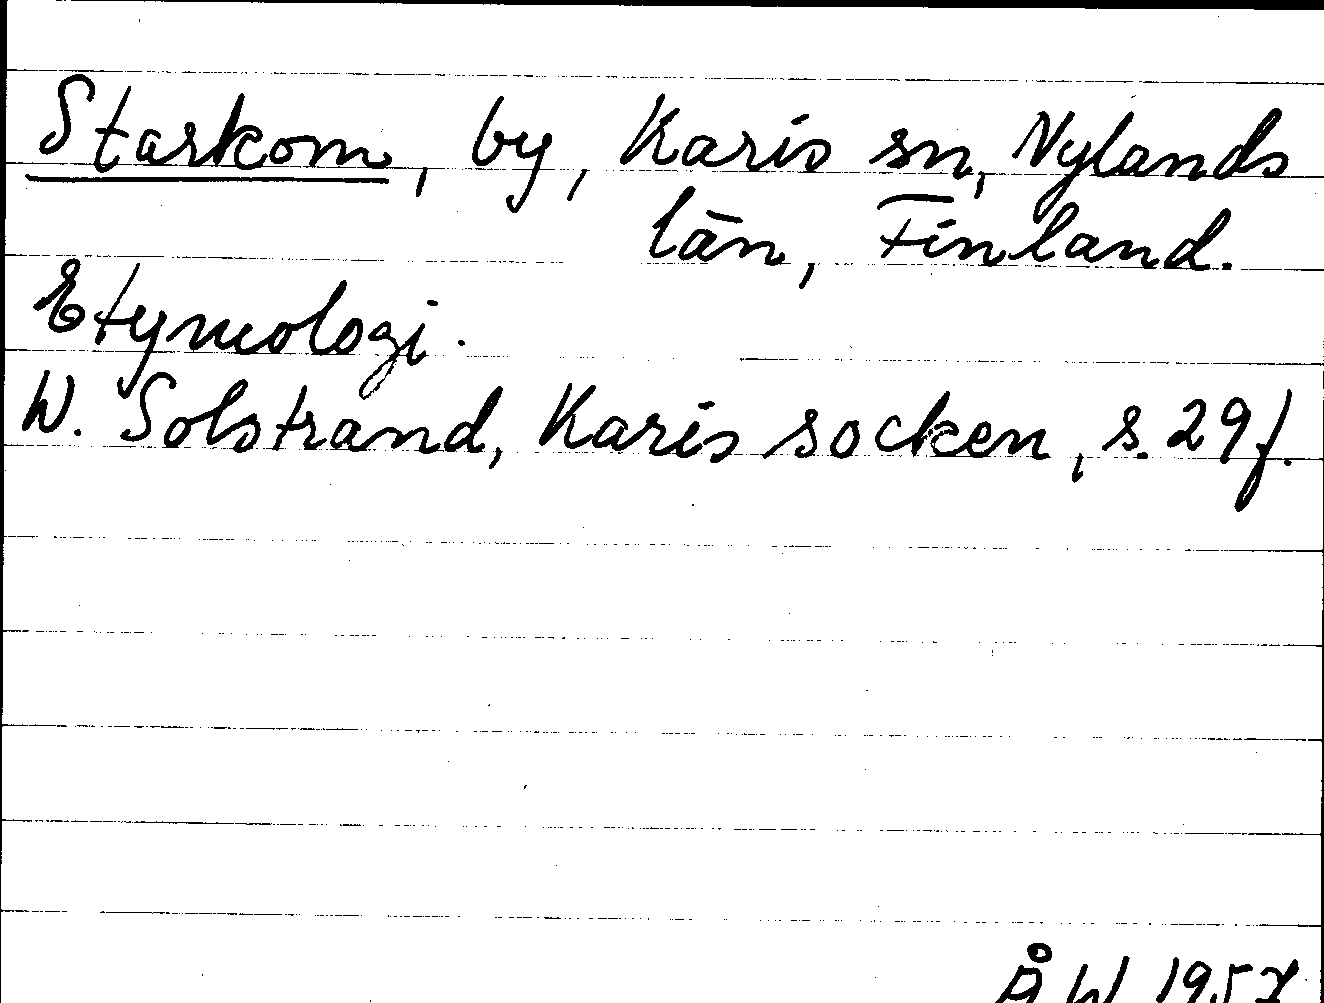 Starkom, by, Karis sn, Nylands
län, Finland.
Etymologi.
W. Solstrand, Karis socken, s. 29f.
Å W 1957